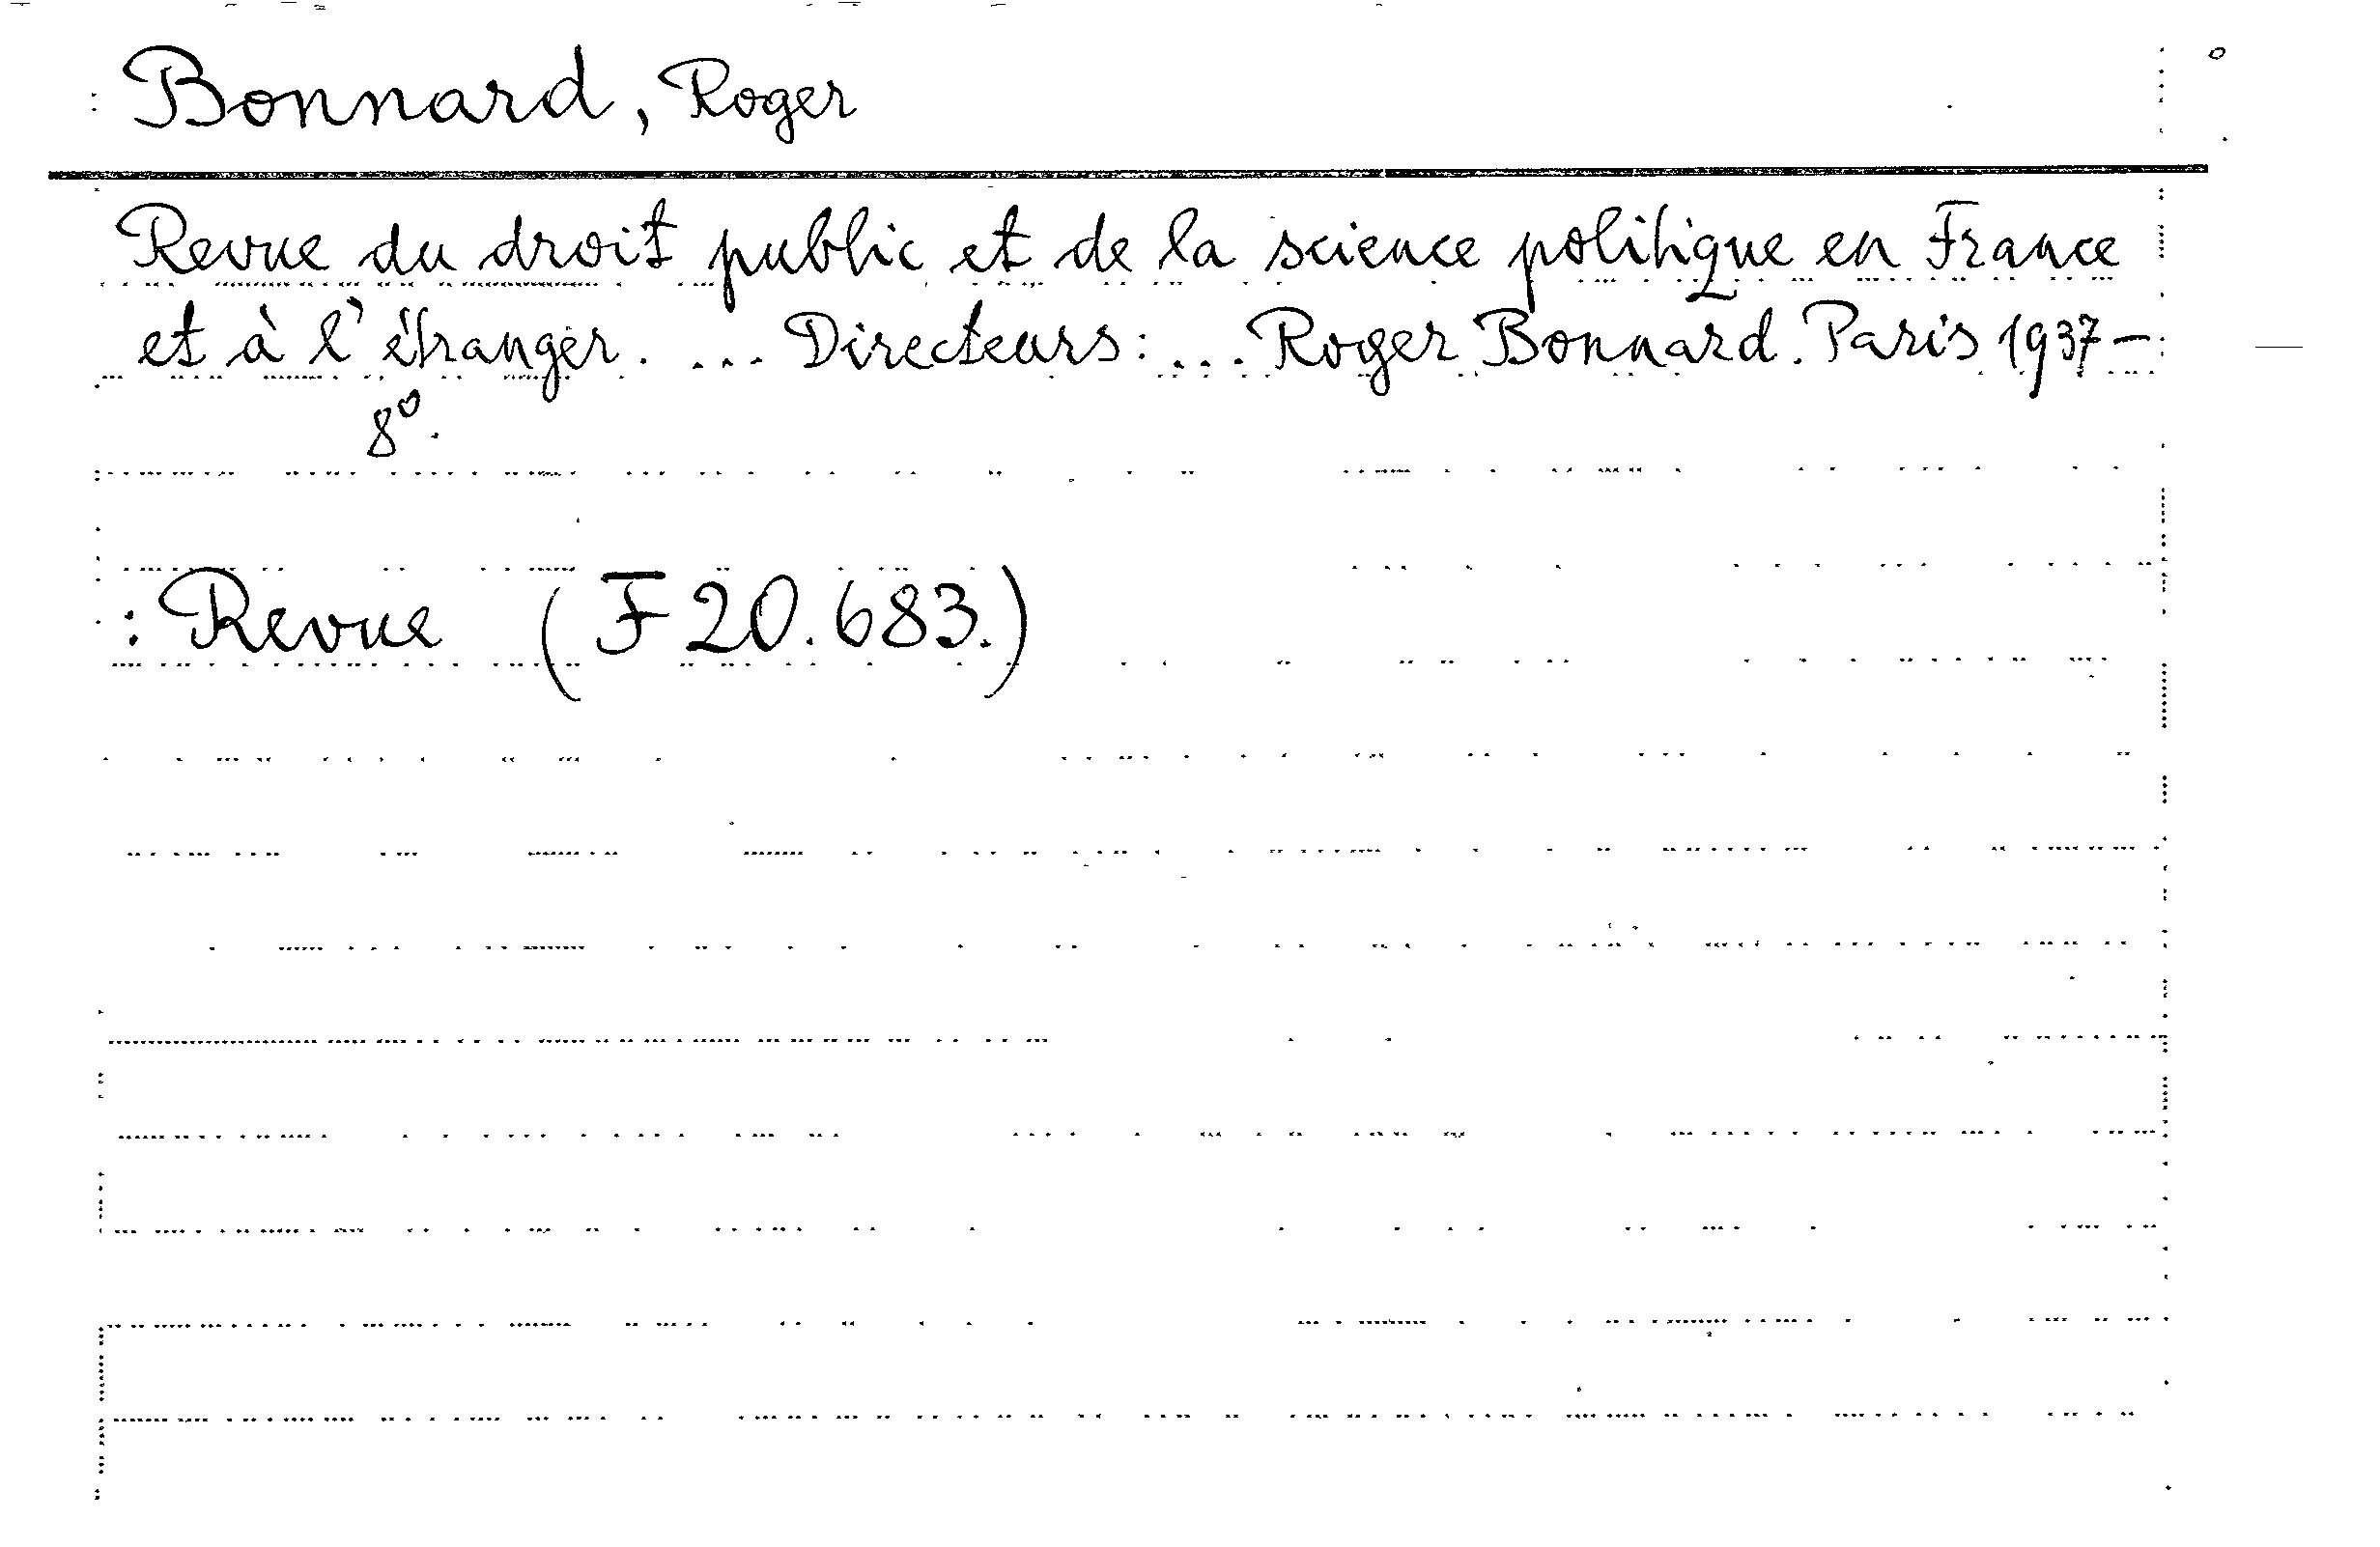 Bonnard, Roger
Revue du droit public et de la science politique en France
et à l'étranger. ... Directeurs: ... Roger Bonnard. Paris 1937-
8º.
: Revue (F 20.683.)